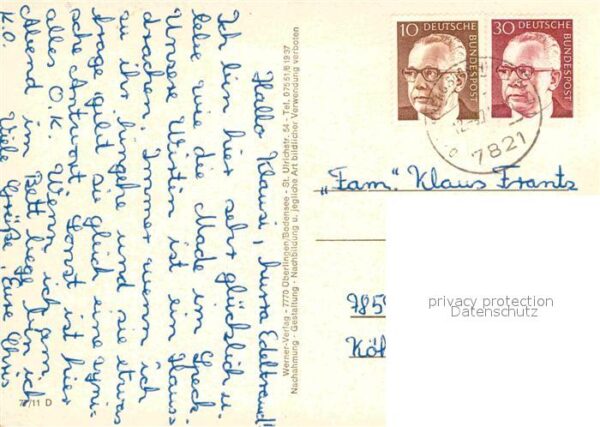 Hallo Klausi, hurra Edeltraud!
Ich bin hier sehr glücklich u.
lebe wie die Made im Speck.
Unsere Wirtin ist ein Haus-
drachen. Immer wenn ich
zu ihr hingehe und sie etwas
frage gibt sie gleich eine
sche Antwort. Sonst ist hier
alles O.K. Wenn ich am
Abend im Bett liege bin ich
K.O. Viele Grüße, Eure Chris
77/11 D
Werner-Verlag - 7770 Überlingen/Bodensee - St. Ulrichstr. 54 - Tel. 07551/61937
Nachahmung - Gestaltung - Nachbildung u. jegliche Art bildlicher Verwendung verboten
10 DEUTSCHE BUNDESPOST
30 DEUTSCHE BUNDESPOST
7821
„Fam." Klaus Frantz
785
Köh
privacy protection
Datenschutz